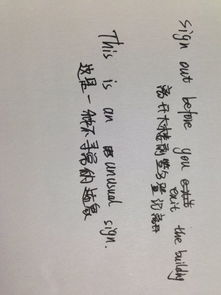 sign out before you exit the building
离开大楼前签名登记离开
This is an unusual sign.
这是一 不寻常的迹象